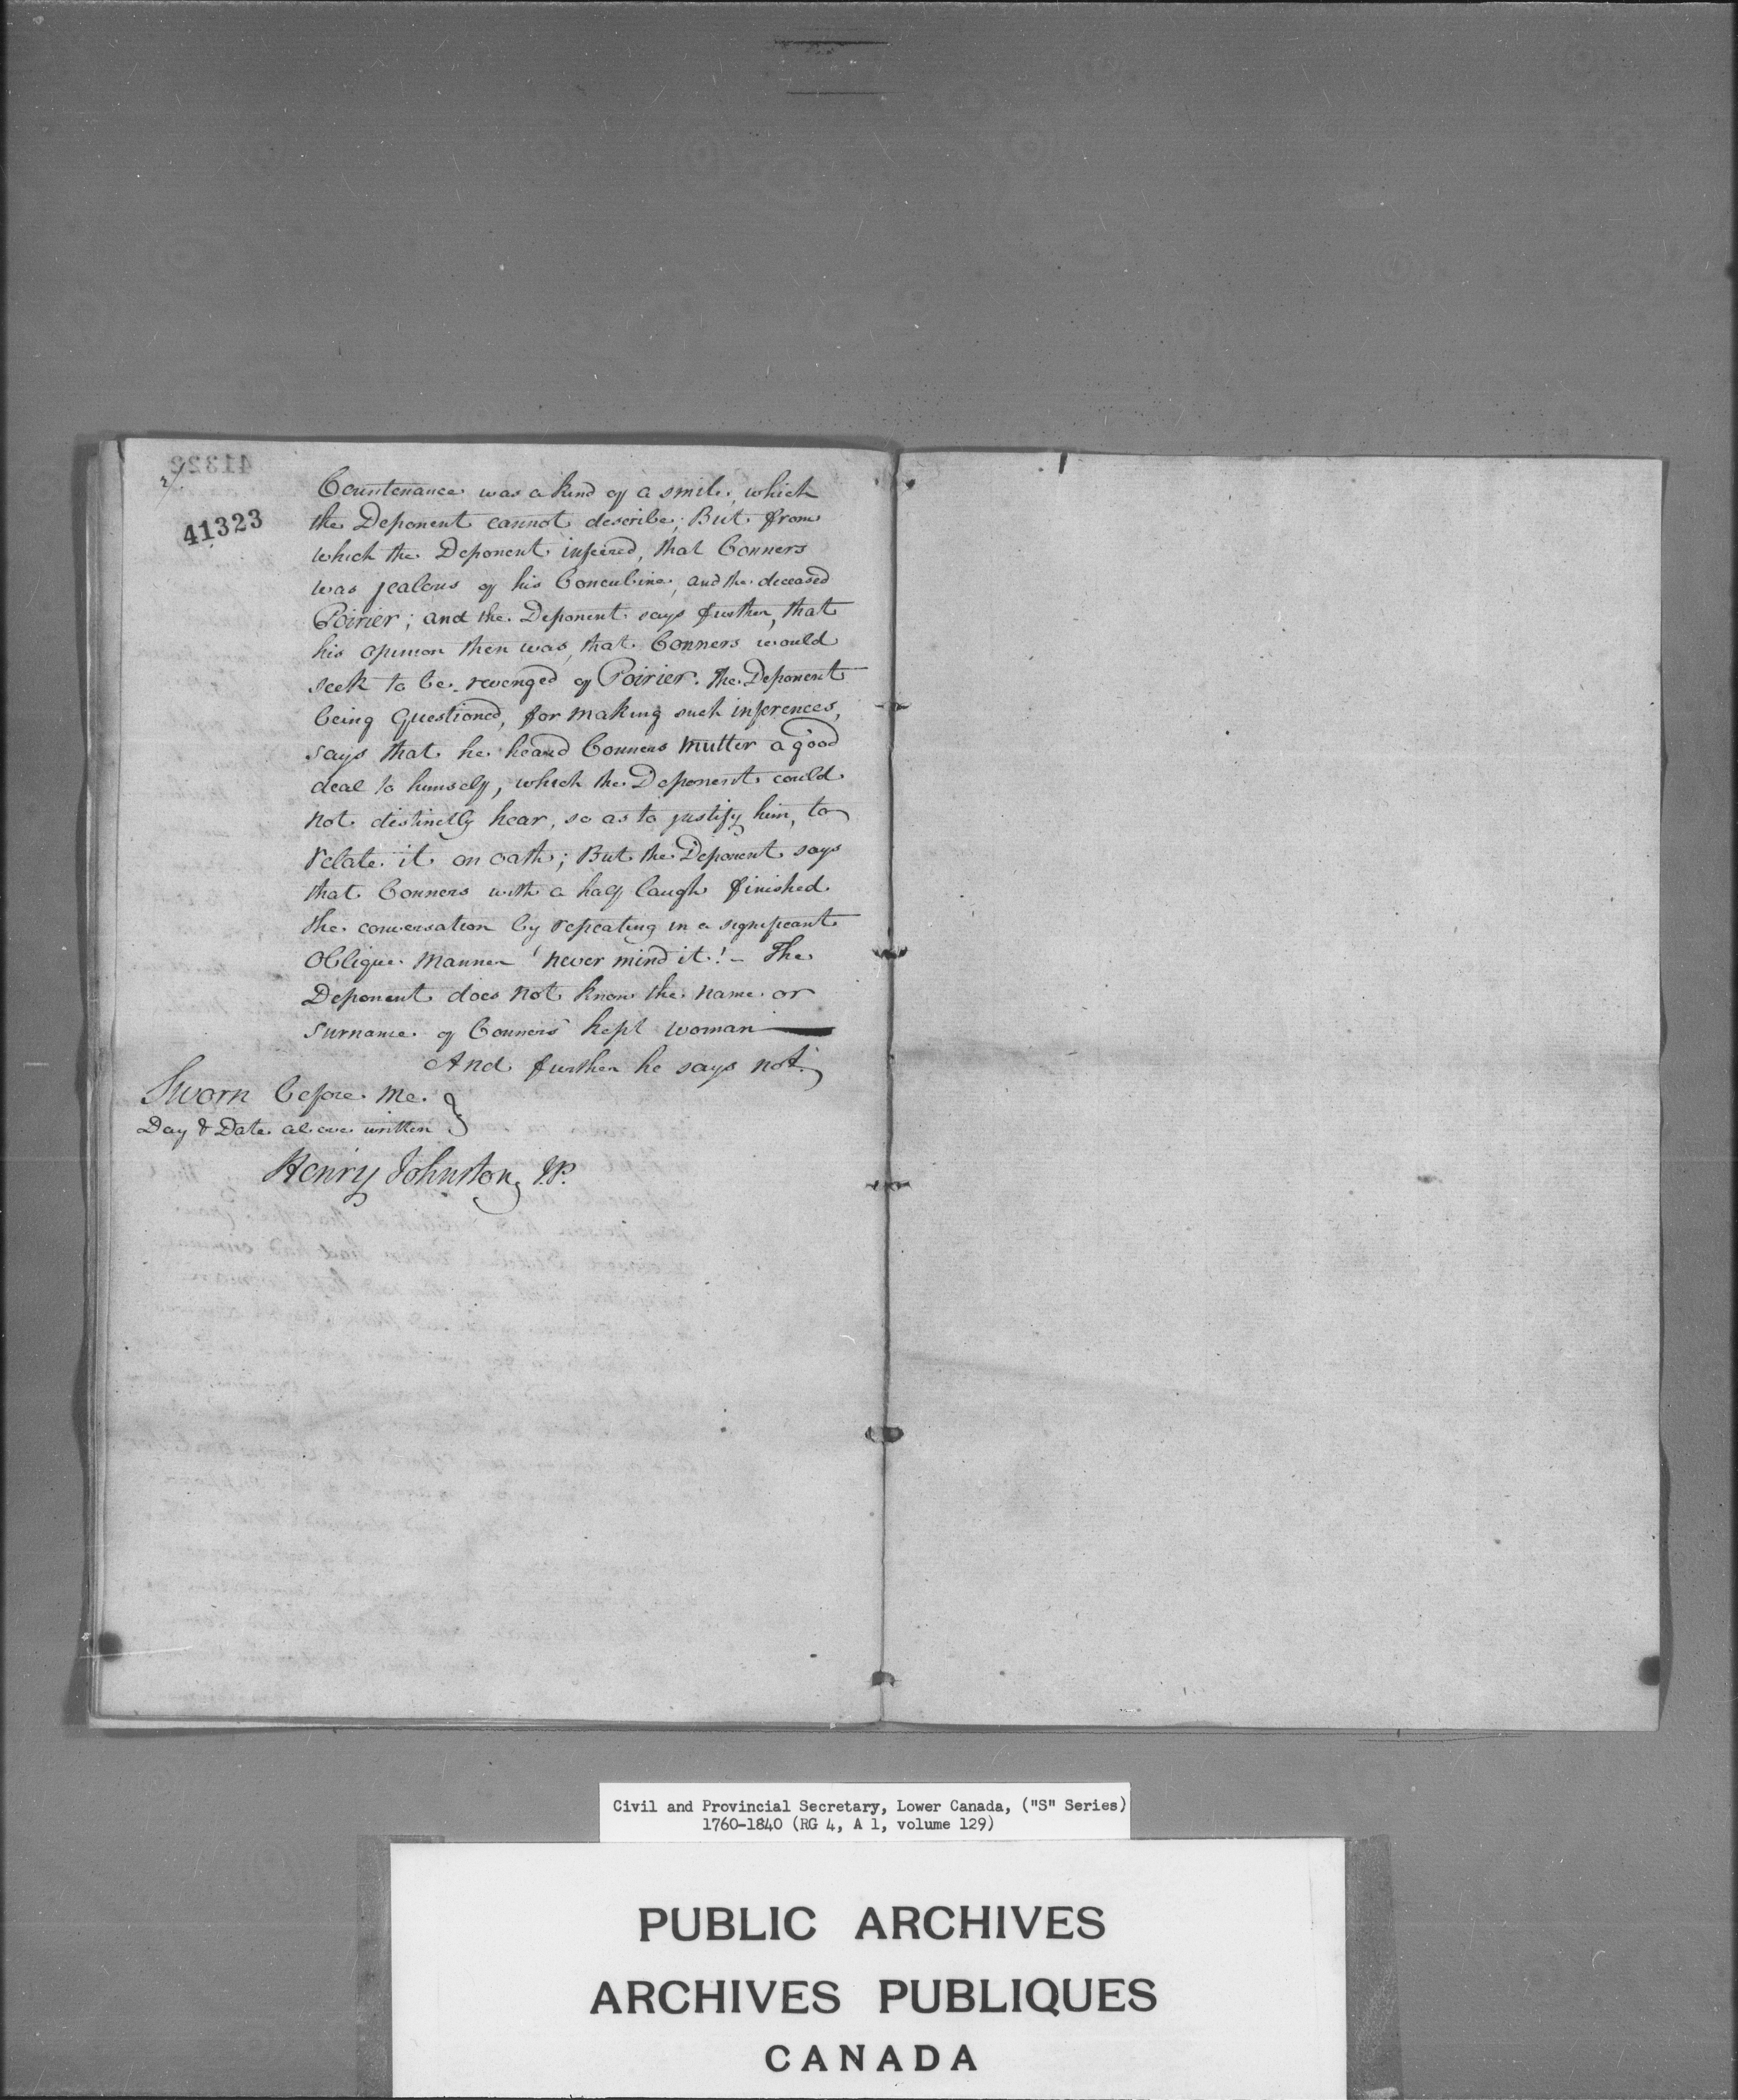 2/
41323
Countenance was a kind of a smile, which
the Deponent cannot describe; But from
which the Deponent infered, that Conners
was jealous of his Concubine, and the deceased
Poirier; and the Deponent says further, that
his opinion then was, that Conners would
seek to be revenged of Poirier. The Deponent
being Questioned, for making such inferences,
says that he heard Conners mutter a good
deal to himself, which the Deponent could
not distinctly hear, so as to justify him, to
relate it on oath; But the Deponent says
that Conners with a half laugh finished
the conversation by repeating in a significant
Oblique manner 'never mind it!- The
Deponent does not know the name or
surname of Conners' kept woman
And further he says not.
Sworn before me
Day & Date above written
Henry Johnston, J.P.
Civil and Provincial Secretary, Lower Canada, ("S" Series)
1760-1840 (RG 4, A 1, volume 129)
PUBLIC ARCHIVES
ARCHIVES PUBLIQUES
CANADA